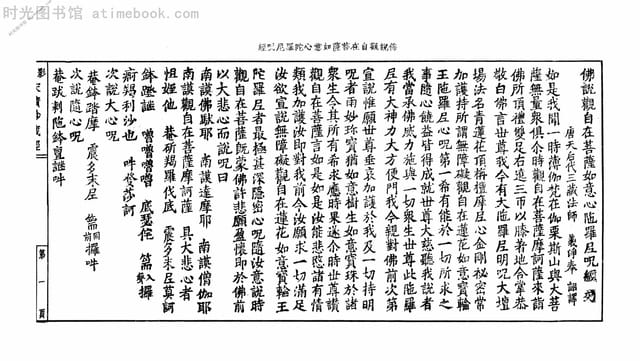 时光图书馆 www.atimebook.com
佛說觀自在菩薩如意心陀羅尼呪經
佛說觀自在菩薩如意心陀羅尼呪經
唐天后代三藏法師 義淨奉 詔譯
如是我聞一時薄伽梵在伽栗斯山與大菩
薩無量衆俱介時觀自在菩薩摩訶薩來詣
佛所頂禮雙足右遶三帀以膝著地合掌恭
敬白佛言世尊我今有大陀羅尼明呪大壇
場法名青蓮花頂栴檀摩尼心金剛秘密常
加護持所謂無障礙觀自在蓮花如意寶輪
王陀羅尼心呪第一希有能於一切所求之
事隨心饒益皆得成就世尊大慈聽我說者
我當承佛威力施與一切衆生世尊此陀羅
尼有大神力大方便門我今親對佛前次第
宣說惟願世尊垂哀加護於我及一切持明
呪者雨妙珍寶猶如意樹生如意寶珠於諸
衆生令其所有希求應時果遂介時世尊讚
觀自在菩薩言如是如是汝能悲愍諸有情
類我加護汝即對我前今汝願求一切滿足
汝欲宣說無障礙觀自在蓮花如意寶輪王
陀羅尼者最極甚深隱密心呪隨汝意說時
觀自在菩薩既蒙佛許悲願盈懷即於佛前
以大悲心而說呪曰
南謨佛馱耶 南謨達摩耶 南謨僧伽耶
南謨觀自在菩薩摩訶薩 具大悲心者
怛姪他 菴斫羯羅伐底 震多末尼 莫訶
鉢蹬謎 嚕嚕嚕嚕 底瑟侘 篅 攞
痾羯利沙也 吽 發莎訶
次說大心呪
菴鉢踏摩 震多末尼 篅 攞吽
次說隨心呪
菴跋剌陀鉢亶謎吽
第一頁